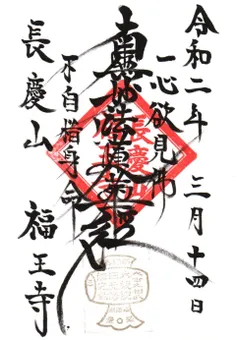 令和二年 三月十四日
一心欲見佛
南無妙法蓮華経
不自惜身命
長慶山 福王寺
長慶山